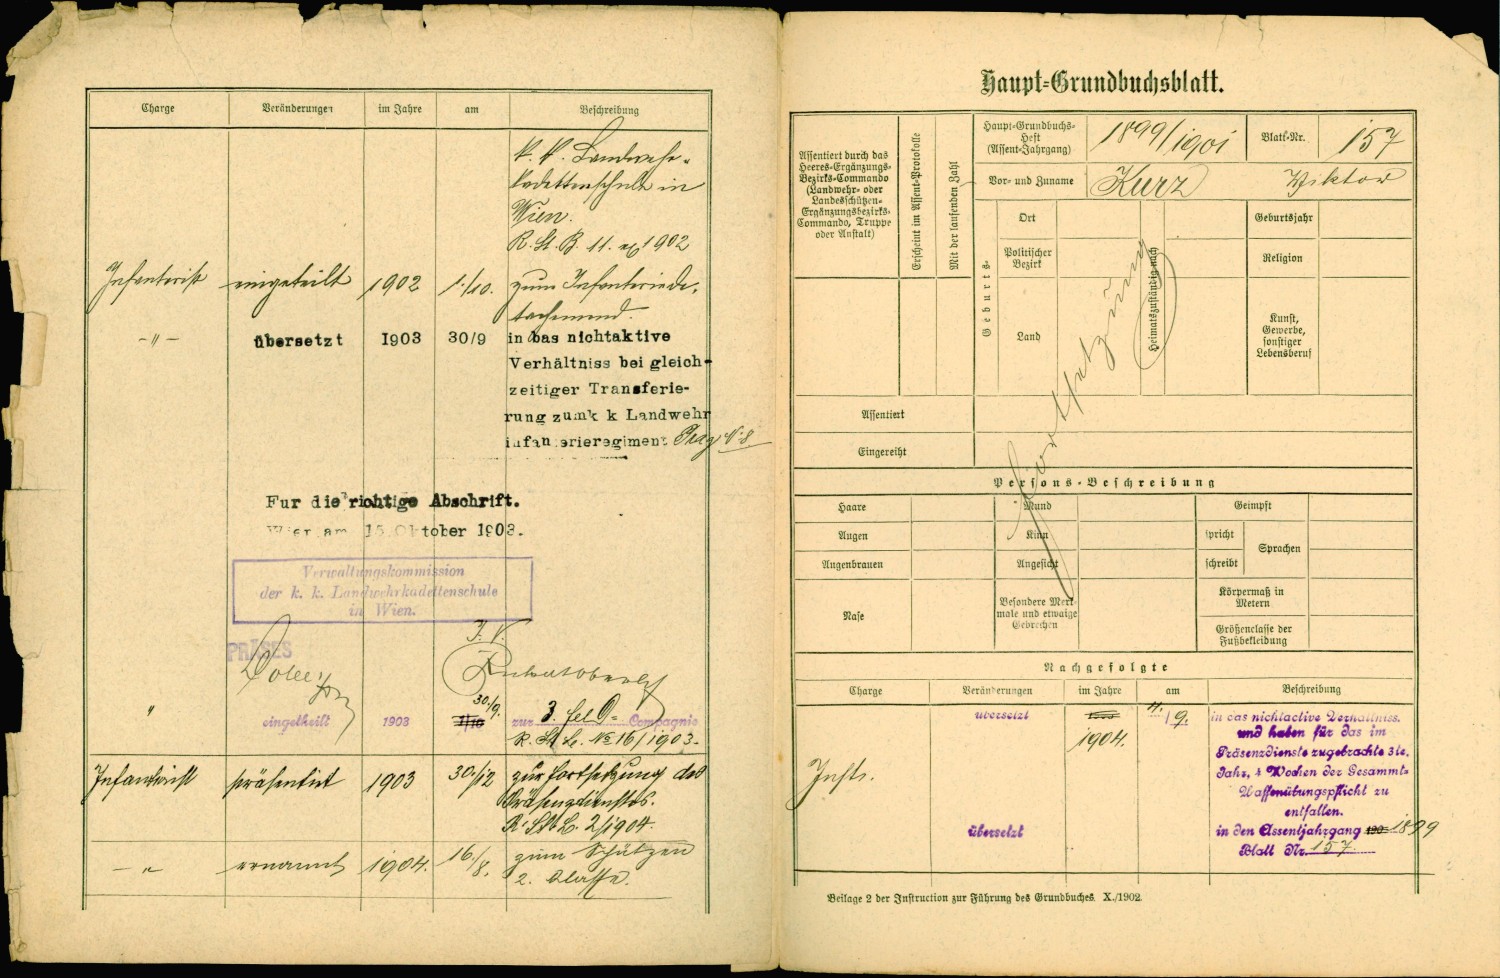 Charge Veränderungen im Jahre am Beschreibung
k. k. Landwehr-
kadettenschule in
Wien.
R. St. B. 11. ex 1902
Infanterist eingeteilt 1902 1./10. zum Infanteriede-
tachement.
-"- übersetzt 1903 30/9 in das nichtaktive
Verhältniss bei gleich-
zeitiger Transferie-
rung zum k k Landwehr
infanterieregiment Prag No 8
Fur die richtige Abschrift.
Wien am 15. Oktober 1903.
Verwaltungskommission
der k. k. Landwehrkadettenschule
in Wien.
I. V.
PRÄSES
30./9.
" eingetheilt 1903 1/10 zur 3. Feld- Compagnie
R. St. B. No 16/1903.
Infanterist präsentirt 1903 30./12 zur Fortsetzung des
Präsenzdienstes.
R. St. B. 2/1904.
-"- ernannt 1904. 16./8. zum Schützen
2. Classe.
Haupt-Grundbuchsblatt.
Assentiert durch das
Heeres-Ergänzungs-
Bezirks-Commando
(Landwehr- oder
Landesschützen-
Ergänzungsbezirks-
Commando, Truppe
oder Anstalt)
Erscheint im Assent-Protokolle
Mit der laufenden Zahl
Haupt-Grundbuchs-
Heft
(Assent-Jahrgang)
1899/1901
Blatt-Nr. 157
Vor- und Zuname Kurz Viktor
Geburts-
Ort
Politischer
Bezirk
Land
Heimatszuständig nach
Geburtsjahr
Religion
Kunst,
Gewerbe,
sonstiger
Lebensberuf
Fortsetzung
Assentiert
Eingereiht
Persons-Beschreibung
Haare Mund Geimpft
Augen Kinn spricht Sprachen
Augenbrauen Angesicht schreibt
Nase
Besondere Merk-
male und etwaige
Gebrechen
Körpermaß in
Metern
Größenclasse der
Fußbekleidung
Nachgefolgte
Charge Veränderungen im Jahre am Beschreibung
übersetzt 1903 11./9. in das nichtactive Verhältniss.
1904. und haben für das im
Präsenzdienste zugebrachte 3te.
Infst. Jahr, 4 Wochen der Gesammt-
Waffenübungspflicht zu
entfallen.
übersetzt in den Assentjahrgang 190 1899
Blatt Nr. 157.
Beilage 2 der Instruction zur Führung des Grundbuches. X./1902.